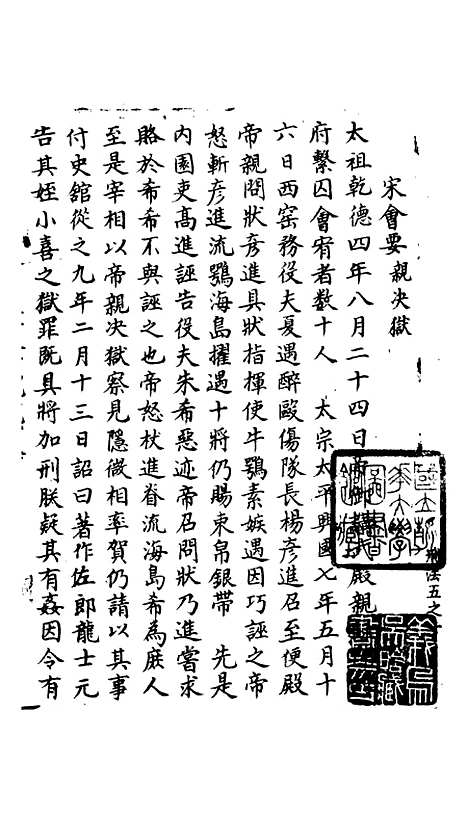 宋會要 親决獄
太祖乾德四年八月二十四日殿親
府繫囚會宥者数十人 太宗太平興國七年五月十
六日西窑務役夫夏遇醉毆傷隊長楊彦進召至便殿
帝親問狀彦進具狀指揮使牛鶚素嫉遇因巧誣之帝
怒斬彦進流鶚海島擢遇十將仍賜束帛銀帶 先是
内園吏髙進誣告役夫朱希惡迹帝召問狀乃進嘗求
賂於希希不與誣之也帝怒杖進眷流海島希為庶人
至是宰相以帝親决獄察見隱微相率賀仍請以其事
付史館從之九年二月十三日詔曰著作佐郎龍士元
告其姪小喜之獄罪既具將加刑朕疑其有姦因令有
刑法五之一